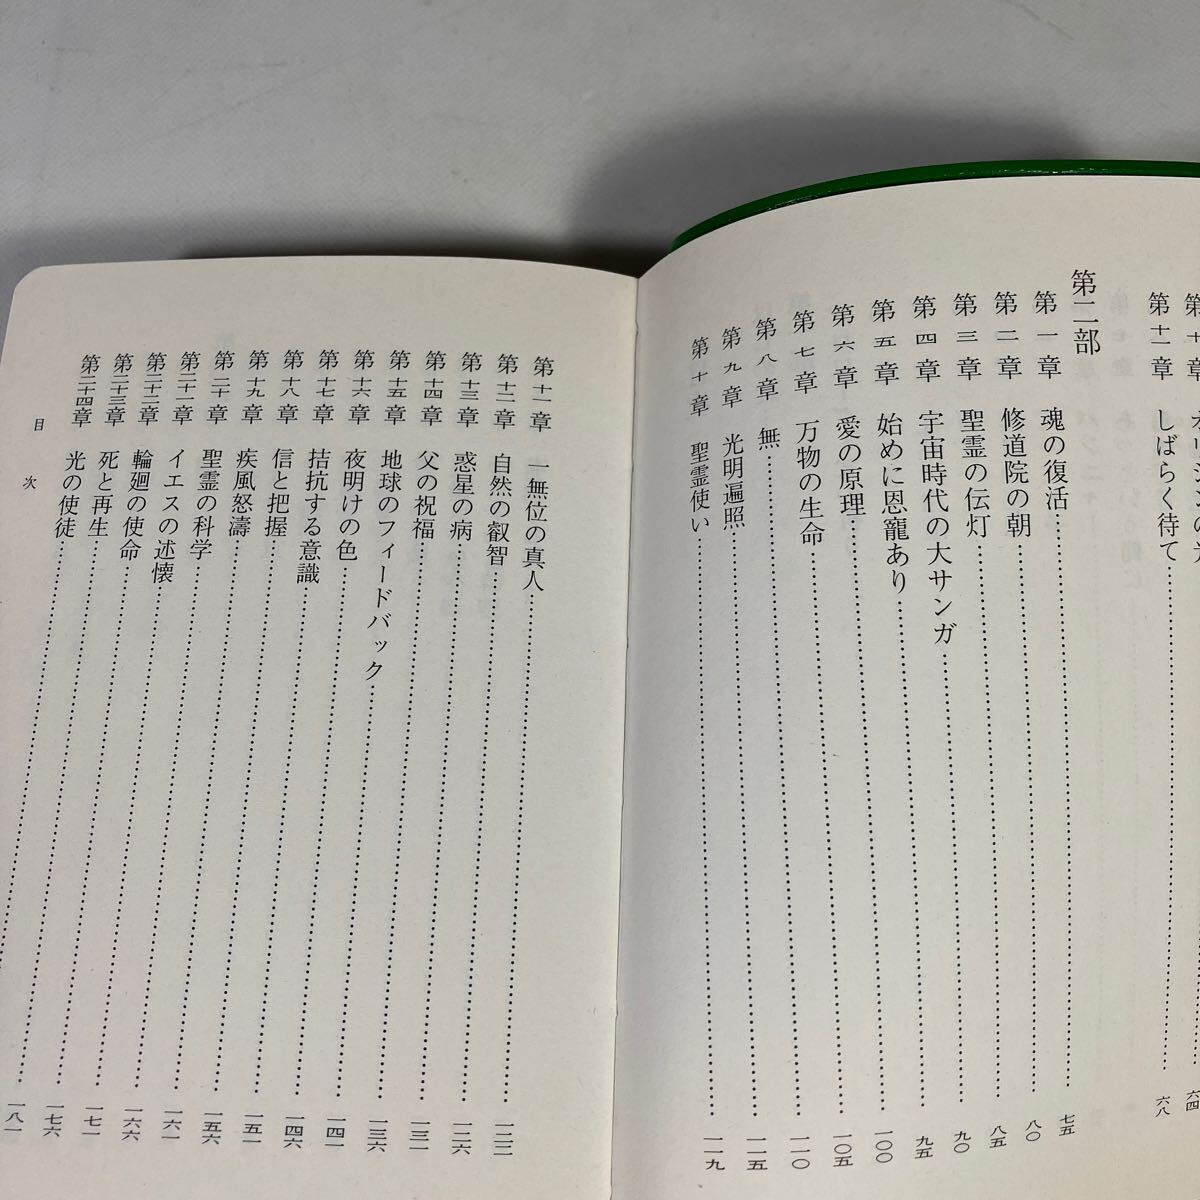 第十一章 しばらく待て……六八
第二部
第一章 魂の復活……七五
第二章 修道院の朝……八〇
第三章 聖霊の伝灯……八五
第四章 宇宙時代の大サンガ……九〇
第五章 始めに恩寵あり……九五
第六章 愛の原理……一〇〇
第七章 万物の生命……一〇五
第八章 無……一一〇
第九章 光明遍照……一一五
第十章 聖霊使い……一一九
第十一章 一無位の真人……一二三
第十二章 自然の叡智……一二六
第十三章 惑星の病……一三一
第十四章 父の祝福……一三六
第十五章 地球のフィードバック……一四一
第十六章 夜明けの色……一四六
第十七章 拮抗する意識……一五一
第十八章 信と把握……一五六
第十九章 疾風怒濤……一六一
第二十章 聖霊の科学……一六六
第二十一章 イエスの述懐……一七一
第二十二章 輪廻の使命……一七六
第二十三章 死と再生……一八一
第二十四章 光の使徒……
目次